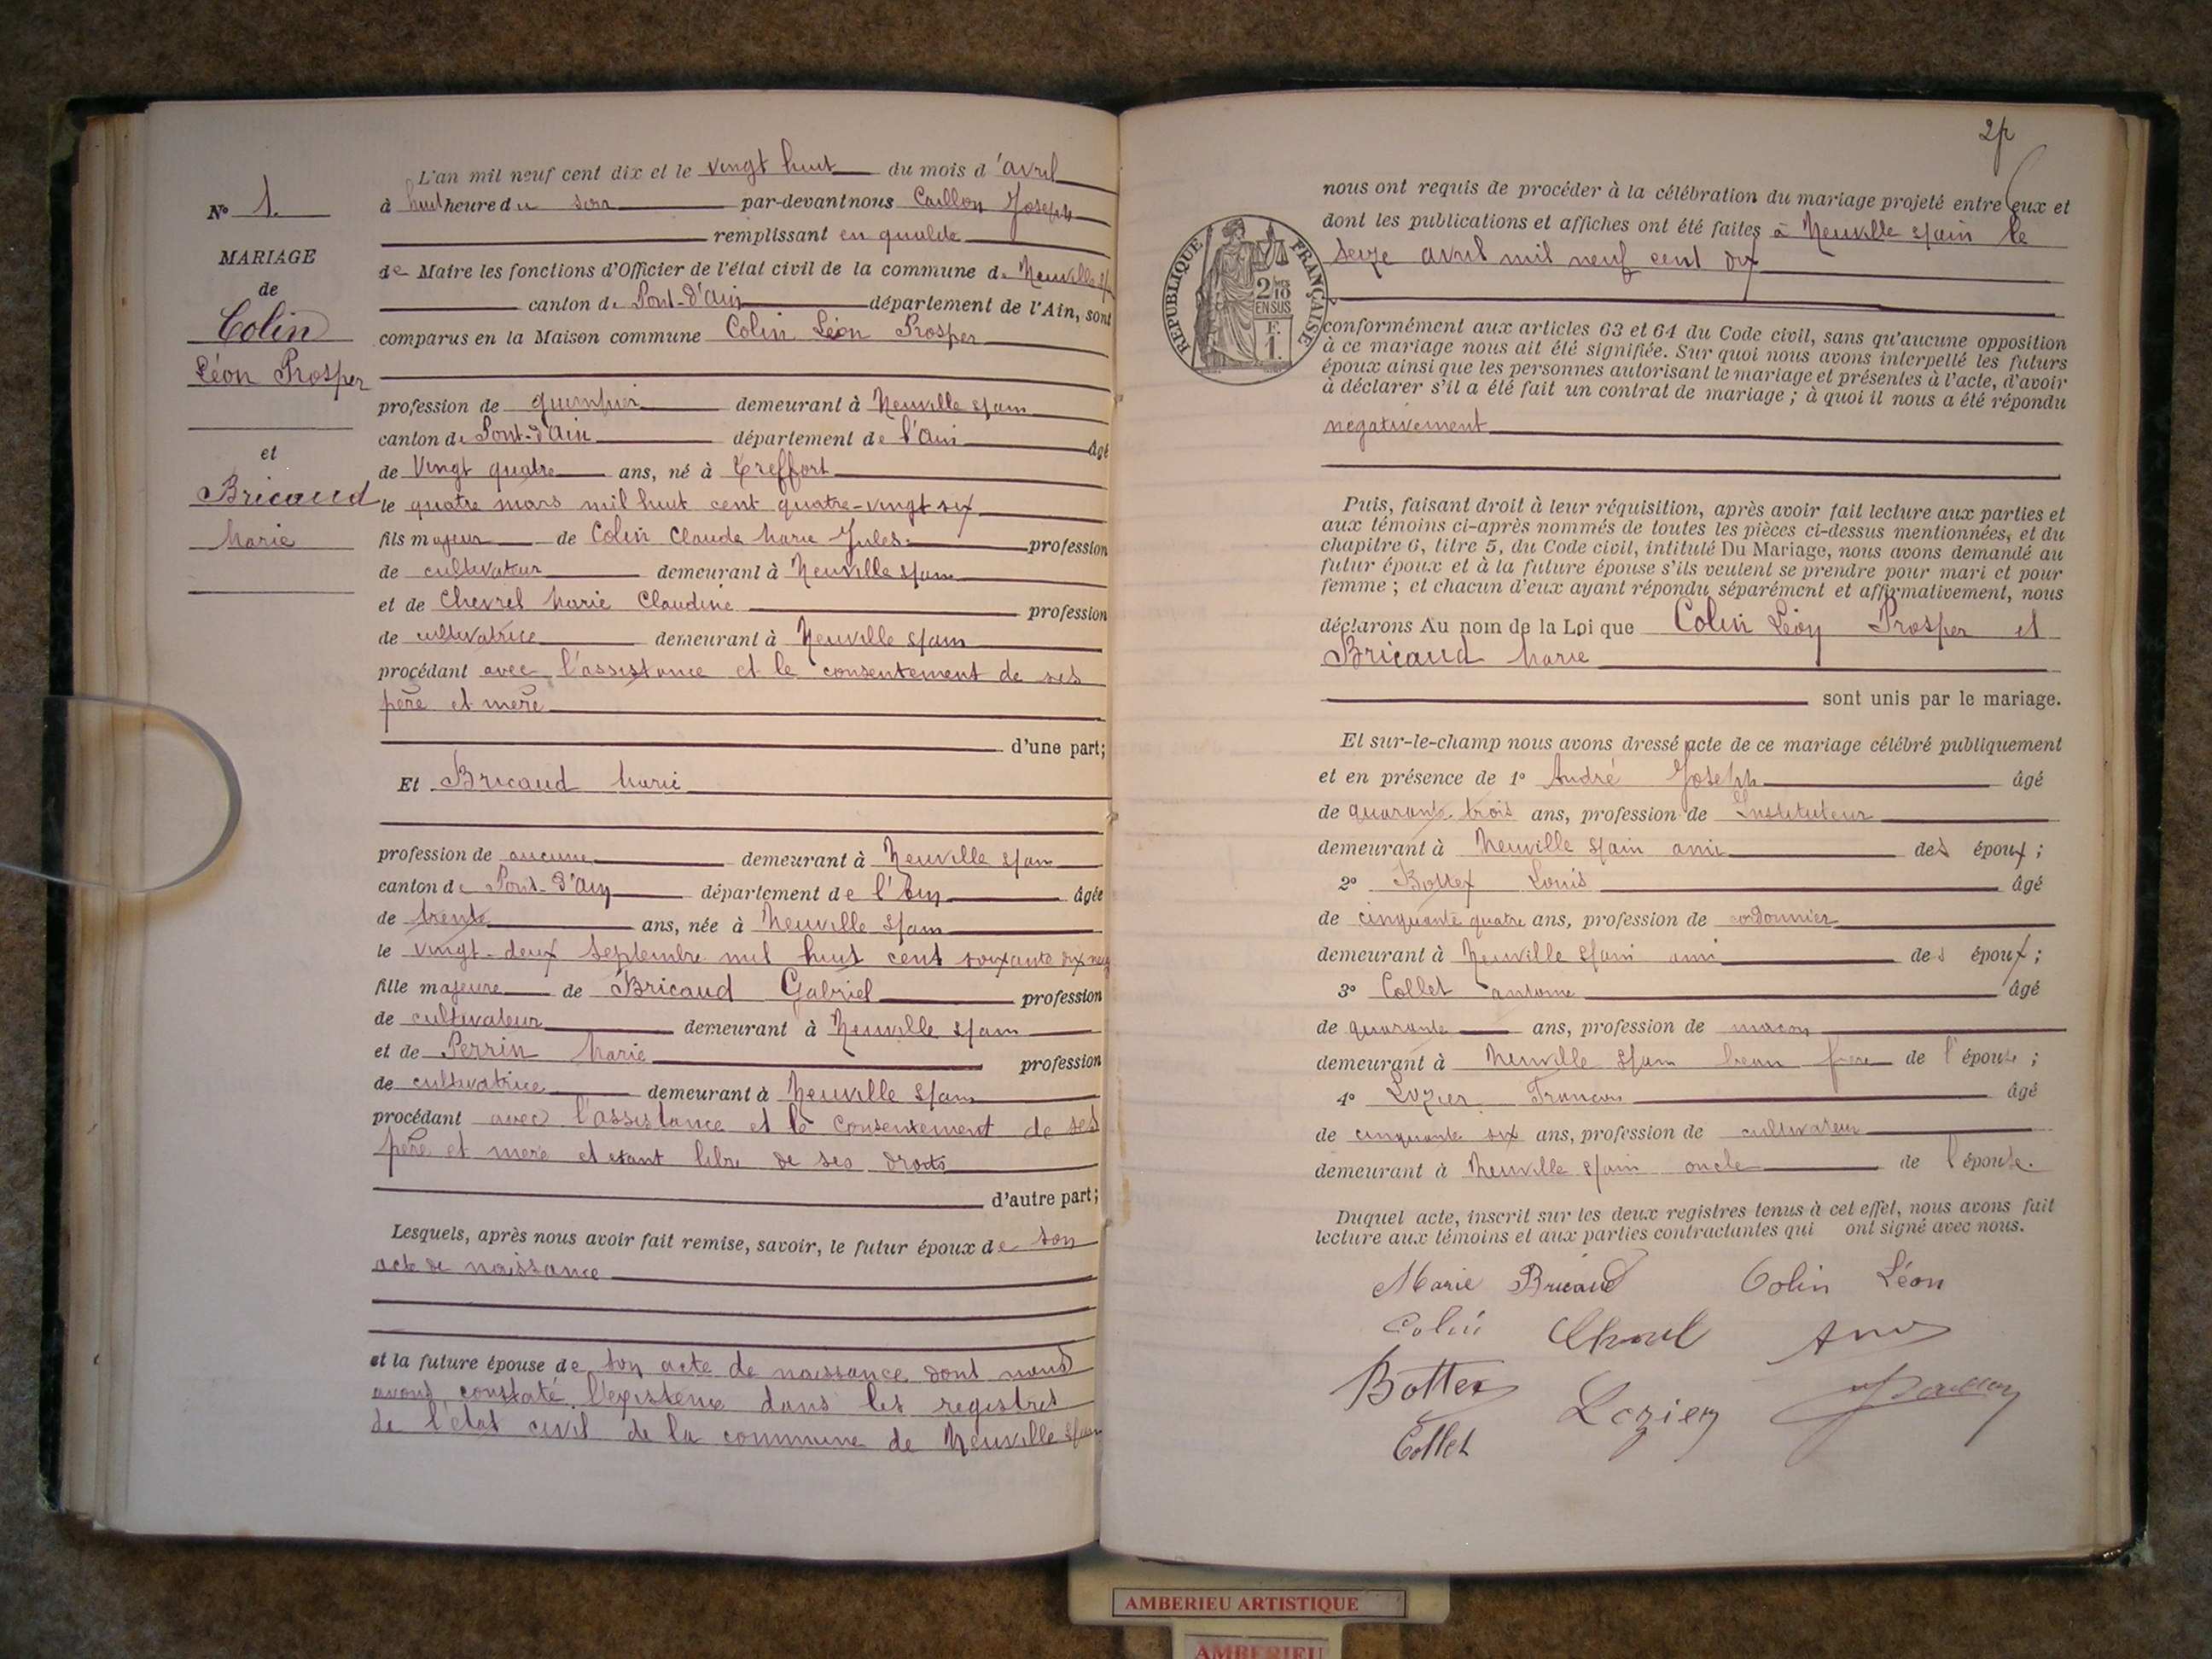 N° 1.
MARIAGE
de
Colin
Léon Prosper
et
Bricaud
Marie
L'an mil neuf cent dix et le vingt huit du mois d'avril
à huit heure du soir par-devant nous Caillon Joseph
remplissant en qualité
de Maire les fonctions d'Officier de l'état civil de la commune de Neuville s/
canton de Pont-d'Ain département de l'Ain, sont
comparus en la Maison commune Colin Léon Prosper
profession de demeurant à Neuville s/ain
canton de Pont-d'Ain département de l'Ain âgé
de Vingt quatre ans, né à Treffort
le quatre mars mil huit cent quatre-vingt six
fils majeur de Colin Claude Marie Jules profession
de cultivateur demeurant à Neuville s/ain
et de Chevrel Marie Claudine profession
de cultivatrice demeurant à Neuville s/ain
procédant avec l'assistance et le consentement de ses
père et mère
d'une part;
Et Bricaud Marie
profession de aucune demeurant à Neuville s/ain
canton de Pont-d'Ain département de l'Ain âgée
de trente ans, née à Neuville s/ain
le vingt-deux septembre mil huit cent soixante dix neuf
fille majeure de Bricaud Gabriel profession
de cultivateur demeurant à Neuville s/ain
et de Perrin Marie profession
de cultivatrice demeurant à Neuville s/ain
procédant avec l'assistance et le consentement de ses
père et mère et étant libre de ses droits
d'autre part;
Lesquels, après nous avoir fait remise, savoir, le futur époux de son
acte de naissance
et la future épouse de son acte de naissance dont nous
avons constaté l'existence dans les registres
de l'état civil de la commune de Neuville s/ain
2
nous ont requis de procéder à la célébration du mariage projeté entre eux et
dont les publications et affiches ont été faites à Neuville s/ain le
seize avril mil neuf cent dix
REPUBLIQUE FRANÇAISE
2/10
EN SUS
F.
1.
conformément aux articles 63 et 64 du Code civil, sans qu'aucune opposition
à ce mariage nous ait été signifiée. Sur quoi nous avons interpellé les futurs
époux ainsi que les personnes autorisant le mariage et présentes à l'acte, d'avoir
à déclarer s'il a été fait un contrat de mariage ; à quoi il nous a été répondu
négativement
Puis, faisant droit à leur réquisition, après avoir fait lecture aux parties et
aux témoins ci-après nommés de toutes les pièces ci-dessus mentionnées, et du
chapitre 6, titre 5, du Code civil, intitulé Du Mariage, nous avons demandé au
futur époux et à la future épouse s'ils veulent se prendre pour mari et pour
femme ; et chacun d'eux ayant répondu séparément et affirmativement, nous
déclarons Au nom de la Loi que Colin Léon Prosper et
Bricaud Marie
sont unis par le mariage.
Et sur-le-champ nous avons dressé acte de ce mariage célébré publiquement
et en présence de 1° André Joseph âgé
de quarante trois ans, profession de Instituteur
demeurant à Neuville s/ain ami des époux ;
2° Bottex Louis âgé
de cinquante quatre ans, profession de cordonnier
demeurant à Neuville s/ain ami des époux ;
3° Collet antoine âgé
de quarante ans, profession de maçon
demeurant à Neuville s/ain beau frère de l'épouse ;
4° Lozier François âgé
de cinquante six ans, profession de cultivateur
demeurant à Neuville s/ain oncle de l'épouse.
Duquel acte, inscrit sur les deux registres tenus à cet effet, nous avons fait
lecture aux témoins et aux parties contractantes qui ont signé avec nous.
Marie Bricaud Colin Léon
Colin
Bottex Lozier
Collet
AMBERIEU ARTISTIQUE
AMBERIEU